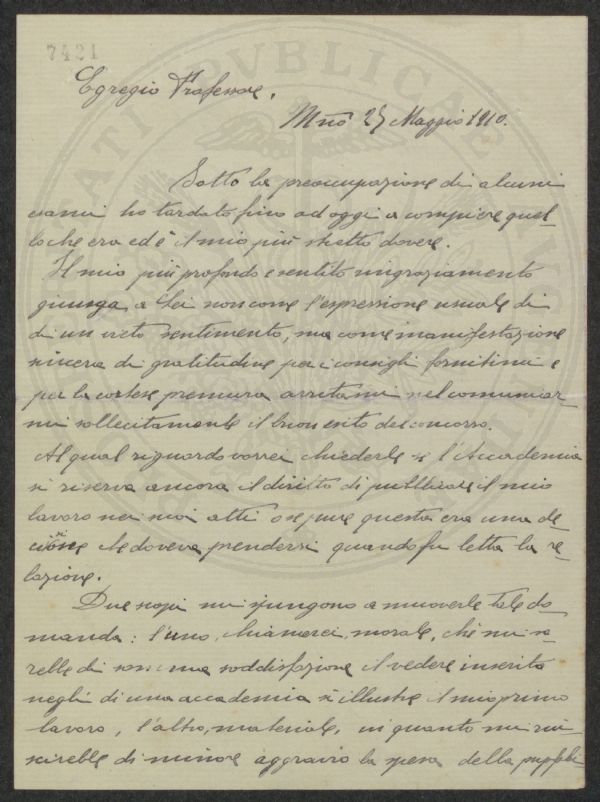 7421
Egregio Professore,
Mno 25 Maggio 1910.
Sotto la preoccupazione di alcuni
esami ho tardato fino ad oggi a compiere quel
lo che era ed è il mio più stretto dovere.
Il mio più profondo e sentito ringraziamento
giunga, a Lei non come l'espressione usuale di
di un vieto sentimento, ma come manifestazione
sincera di gratitudine per i consigli fornitimi e
per la cortese premura avutami nel comunicar-
mi sollecitamente il buon esito del concorso.
Al qual riguardo vorrei chiederle se l'Accademia
si riserva ancora il diritto di pubblicare il mio
lavoro nei suoi atti o seppure questa era una de-
cisione che doveva prendersi quando fu letta la re-
lazione.
Due scopi mi spingono a muoverle tale do-
manda: l'uno, chiamerei, morale, chè mi sa-
rebbe di somma soddisfazione il vedere inserito
negli di una accademia sì illustre il mio primo
lavoro, l'altro, materiale, in quanto mi riu-
scirebbe di minore aggravio la spesa della